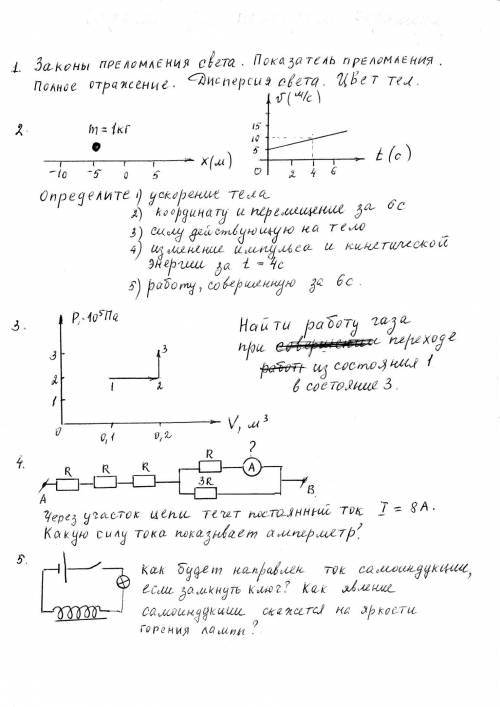 1. Законы преломления света. Показатель преломления.
Полное отражение. Дисперсия света. Цвет тел.
2.
m = 1кг
-10 -5 0 5 x(м)
v(м/с)
15
10
5
0 2 4 6 t(с)
Определите 1) ускорение тела
2) координату и перемещение за 6с
3) силу действующую на тело
4) изменение импульса и кинетической
энергии за t = 4с
5) работу, совершенную за 6с.
3.
P,·10⁵Па
3
2
1
0 0,1 0,2 V, м³
1 2 3
Найти работу газа
при переходе
из состояния 1
в состояние 3.
4.
A R R R R A ? B
3R
Через участок цепи течет постоянный ток I = 8А.
Какую силу тока показывает амперметр?
5.
Как будет направлен ток самоиндукции,
если замкнуть ключ? Как явление
самоиндукции скажется на яркости
горения лампы?